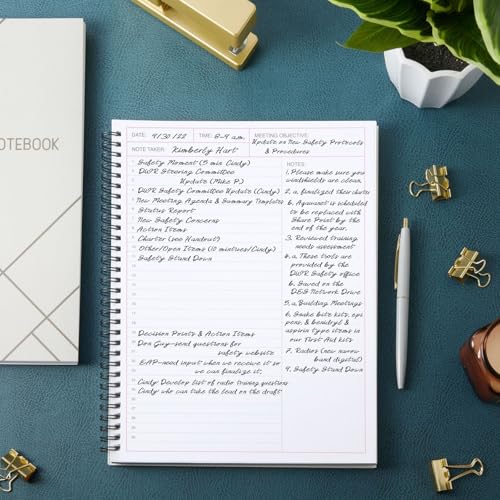 NOTEBOOK
DATE: 9/30/22 TIME: 8-9 a.m. MEETING OBJECTIVE:
Update on New Safety Protocols
& Procedures
NOTE TAKER: Kimberly Hart
Safety Moment (5 min Cindy)
DWR Steering Committee
Update (Mike P.)
DWR Safety Committee Update (Cindy)
New Meeting Agenda & Summary Templates
Status Report
New Safety Concerns
Action Items
Charter (see Handout)
Other/Open Items (10 mintues/Cindy)
Safety Stand Down
Decision Points & Action Items
Don Guy-send questions for
safety website
EAP-need input when we receive it so
we can finalize it.
Cindy Develop list of radio training questions
Cindy who can take the lead on the draft
NOTES:
1. Please make sure your
windshields are clean.
2. a. finalized their charter
b. Aquanet is scheduled
to be replaced with
Share Point by the
end of the year.
3. Reviewed training
needs assessment
4. a. These tools are
provided by the
DWR Safety office
b. Saved on the
DES Network Drive
5. a. Building Meetings
6. Snake bite kits, epi
pens, & benidryl &
aspirin type items in
our First Aid kits
7. Radios (new narrow
band digital)
9. Safety Stand Down